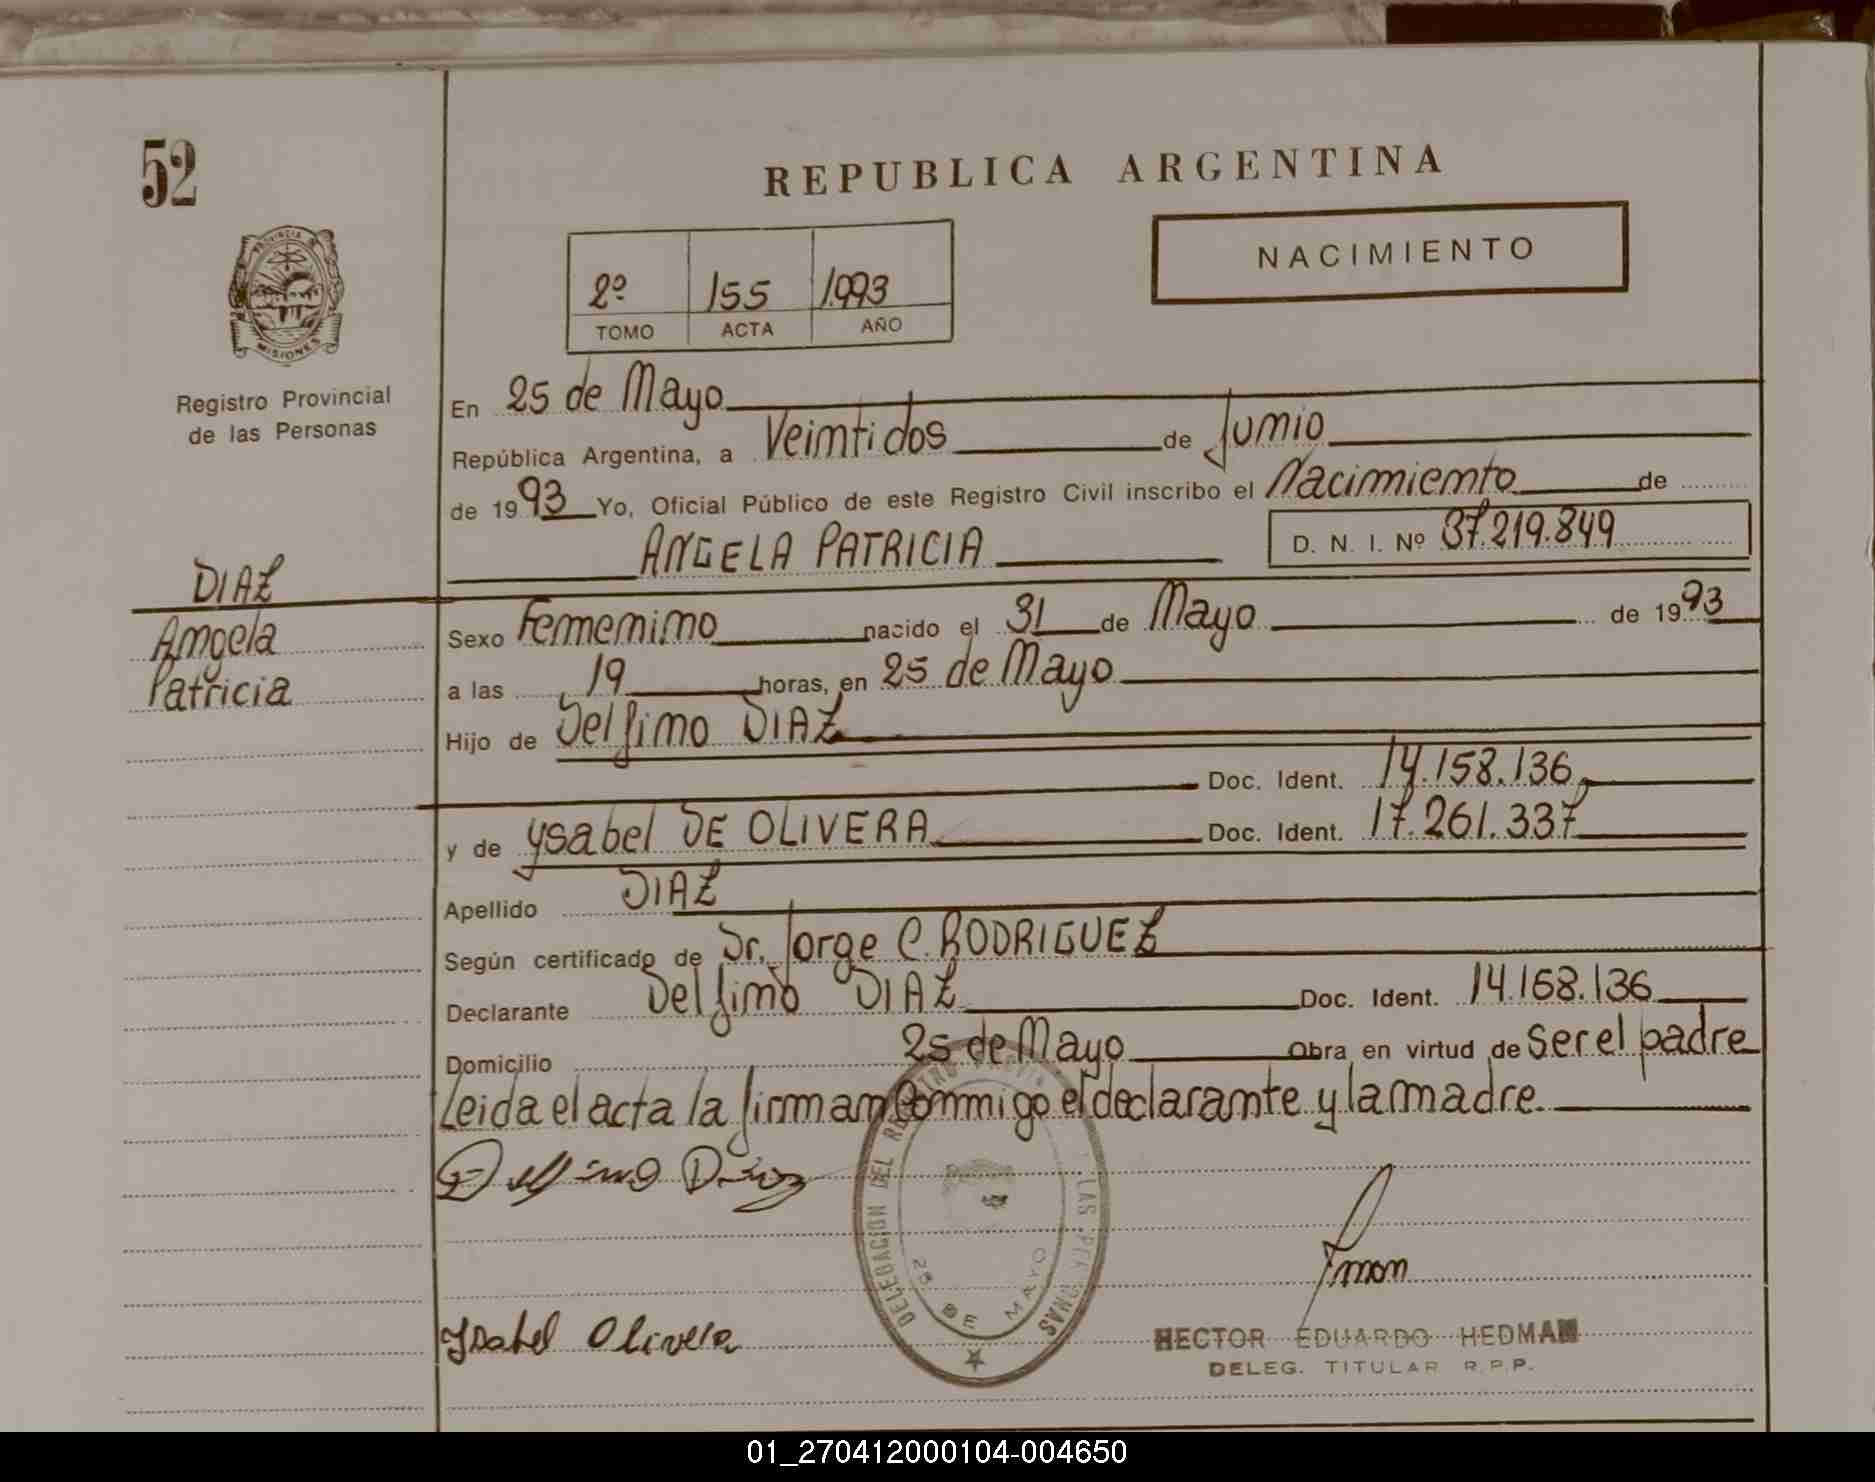 52
REPUBLICA ARGENTINA
NACIMIENTO
2º 155 1993
TOMO ACTA AÑO
PROVINCIA DE
MISIONES
Registro Provincial
de las Personas
En 25 de Mayo
República Argentina, a Veintidos de Junio
de 1993 Yo, Oficial Público de este Registro Civil inscribo el Nacimiento de
ANGELA PATRICIA D. N. I. Nº 37.219.849
DIAZ
Angela
Patricia
Sexo Femenino nacido el 31 de Mayo de 1993
a las 19 horas, en 25 de Mayo
Hijo de Delfino DIAZ
Doc. Ident. 14.158.136
y de Ysabel DE OLIVERA Doc. Ident. 17.261.337
Apellido DIAZ
Según certificado de Dr. Jorge C. RODRIGUEZ
Declarante Delfino DIAZ Doc. Ident. 14.158.136
Domicilio 25 de Mayo Obra en virtud de ser el padre
Leida el acta la firman conmigo el declarante y la madre.
Delfino Diaz
DELEGACION DEL REGISTRO PROVIN LAS PERSONAS
25 DE MAYO
Ysabel Olivera
HECTOR EDUARDO HEDMAN
DELEG. TITULAR R.P.P.
01_270412000104-004650